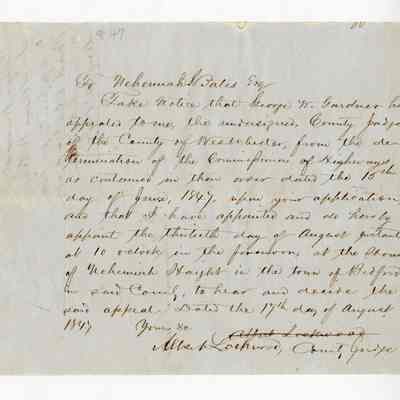 To Nehemiah S Bates Esq
Take Notice that George W. Gardner has
appealed to me, the undersigned County Judge
of the County of Westchester, from the de-
termination of the Commissioners of Highways
as contained in their order dated the 15th
day of June, 1847, upon your application
and that I have appointed and do hereby
appoint the thirtieth day of August instant
at 10 oclock in the forenoon, at the House
of Nehemiah Haight in the town of Bedford
in said County, to hear and decide the
said appeal. Dated the 17th day of August
1847 Yours &c
Albert Lockwood
Albert Lockwood, County Judge